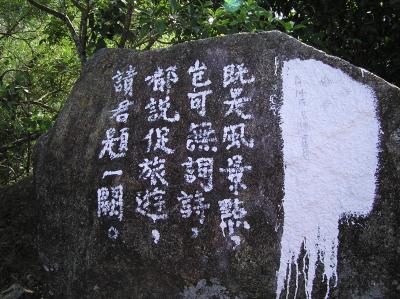 既是風景點，
豈可無調詩，
都說促旅遊，
請君題一闕。